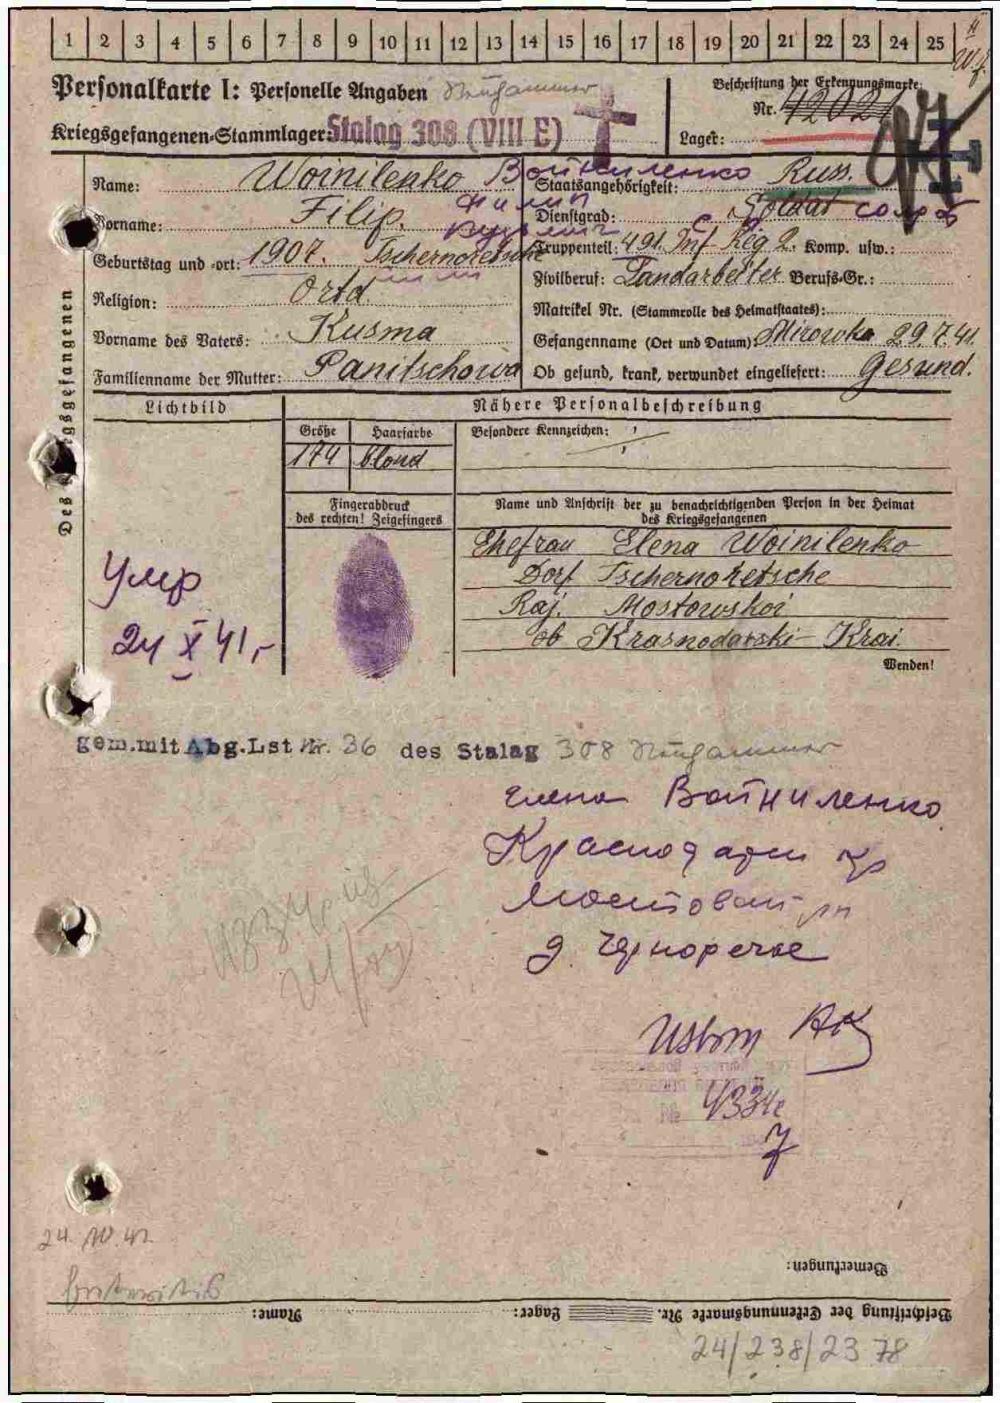 1 2 3 4 5 6 7 8 9 10 11 12 13 14 15 16 17 18 19 20 21 22 23 24 25
Personalkarte I: Personelle Angaben Neuhammer
Kriegsgefangenen-Stammlager: Stalag 308 (VIII E)
Beschriftung der Erkennungsmarke:
Nr. 42021
Lager:
Des Kriegsgefangenen
Name: Woinilenko Войниленко
Vorname: Filip. Филип
Кузьмич
Geburtstag und -ort: 1907. Tschernoretsche
Religion: Ortd.
Vorname des Vaters: Kusma
Familienname der Mutter: Panitschowa
Staatsangehörigkeit: Russ.
Dienstgrad: Soldat солдат
Truppenteil: 491. Inf Reg 2. Komp. usw.:
Zivilberuf: Landarbeiter Berufs-Gr.:
Matrikel Nr. (Stammrolle des Heimatstaates):
Gefangenname (Ort und Datum): Mirowka 29.7.41.
Ob gesund, krank, verwundet eingeliefert: Gesund.
Lichtbild
Nähere Personalbeschreibung
Größe Haarfarbe Besondere Kennzeichen:
174 blond
Fingerabdruck
des rechten! Zeigefingers
Name und Anschrift der zu benachrichtigenden Person in der Heimat
des Kriegsgefangenen
Ehefrau Elena Woinilenko
Dorf Tschernoretsche
Raj. Mostowskoi
ob Krasnodarski Krai.
Wenden!
Умр
24 X 41,-
gem.mit Abg.Lst Nr. 36 des Stalag 308 Neuhammer
Елена Войниленко
Краснодарск кр
Мостовой рн
д. Черноречье
№ 4334с
24. 10. 41.
Bemerkungen:
Name: Lager: Beschriftung der Erkennungsmarke Nr.
24/238/2378